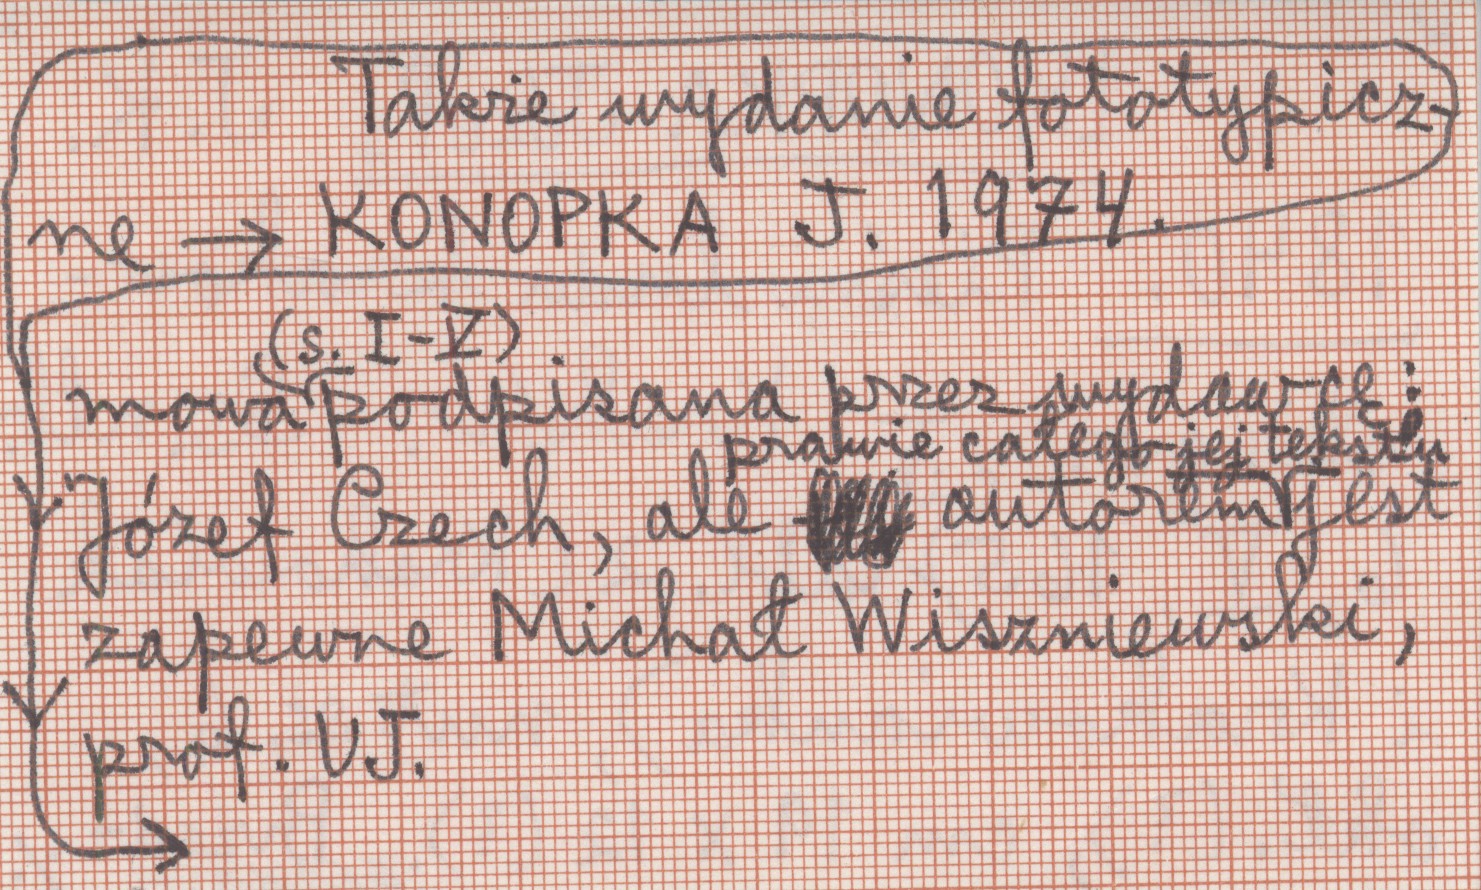 Także wydanie fototypicz-
ne → KONOPKA J. 1974.
(s. I-V)
mowa podpisana przez wydawcę:
prawie całego jej tekstu
Józef Czech, ale autorem jest
zapewne Michał Wiszniewski,
prof. UJ.